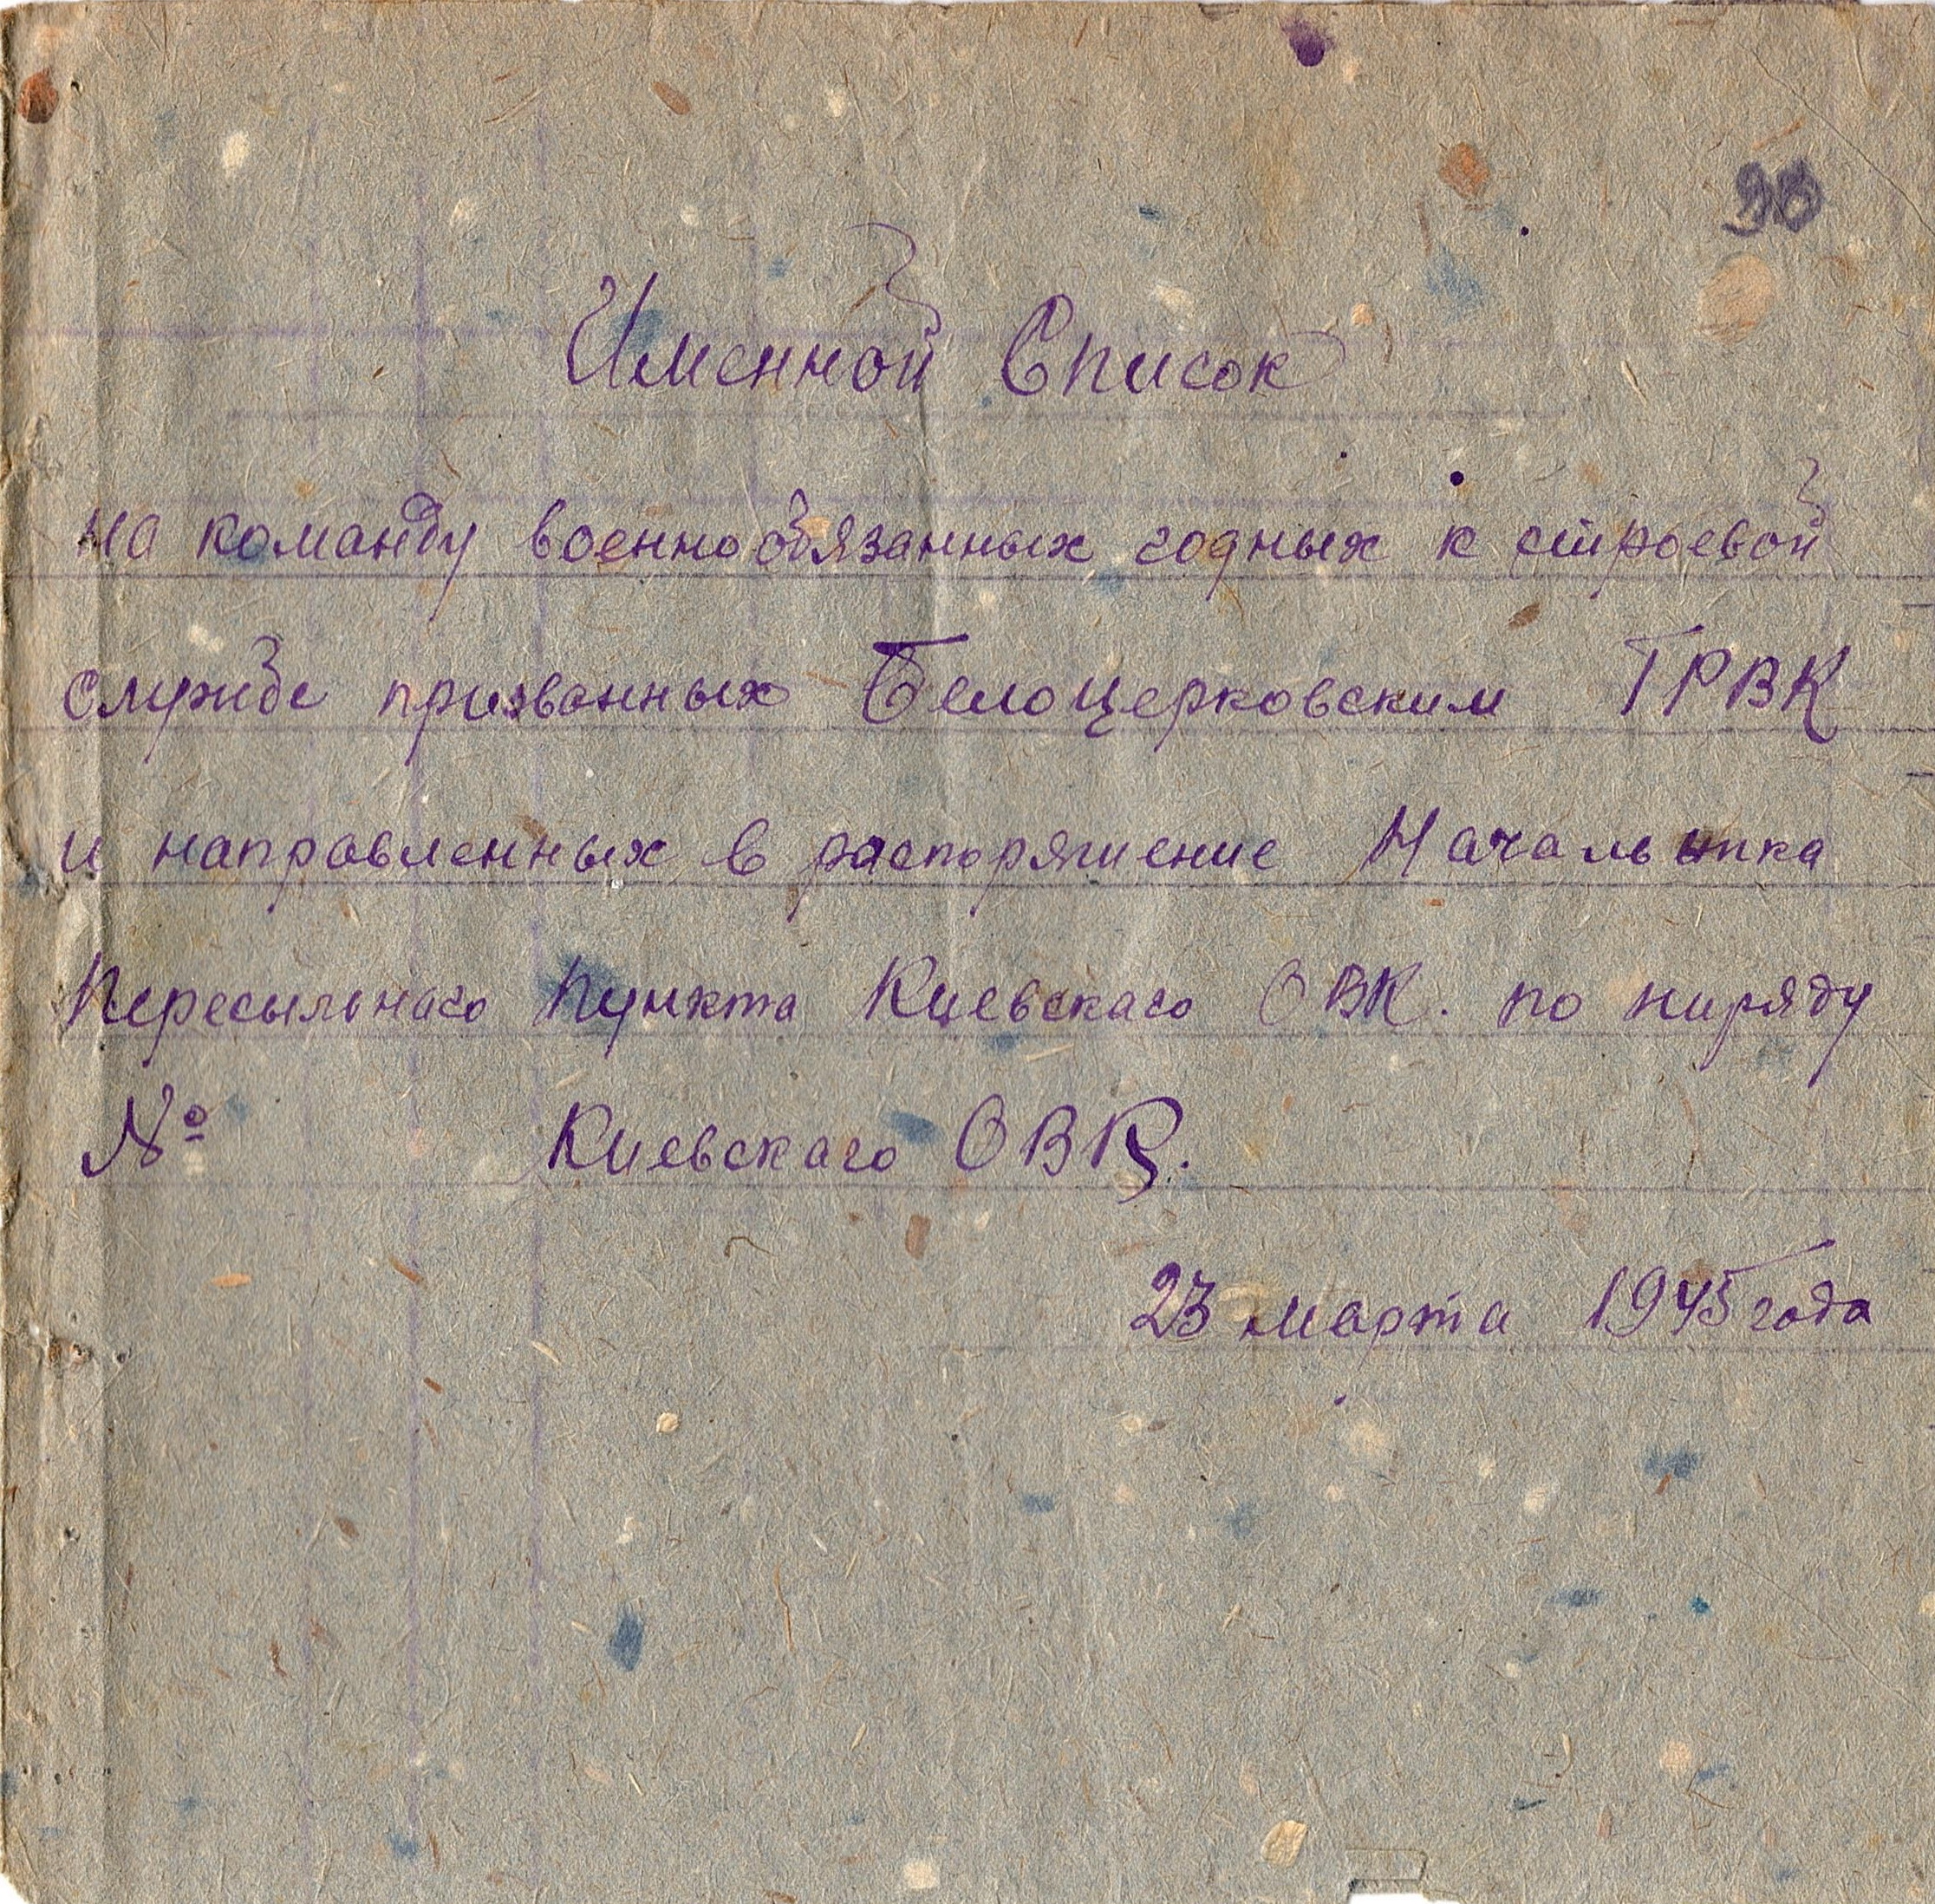 Именной Список
на команду военнообязанных годных к строевой
службе призванных Белоцерковским ГРВК
и направленных в распоряжение Начальника
Пересыльнаго Пункта Киевскаго ОВК. по наряду
№ Киевскаго ОВК.
23 марта 1945 года